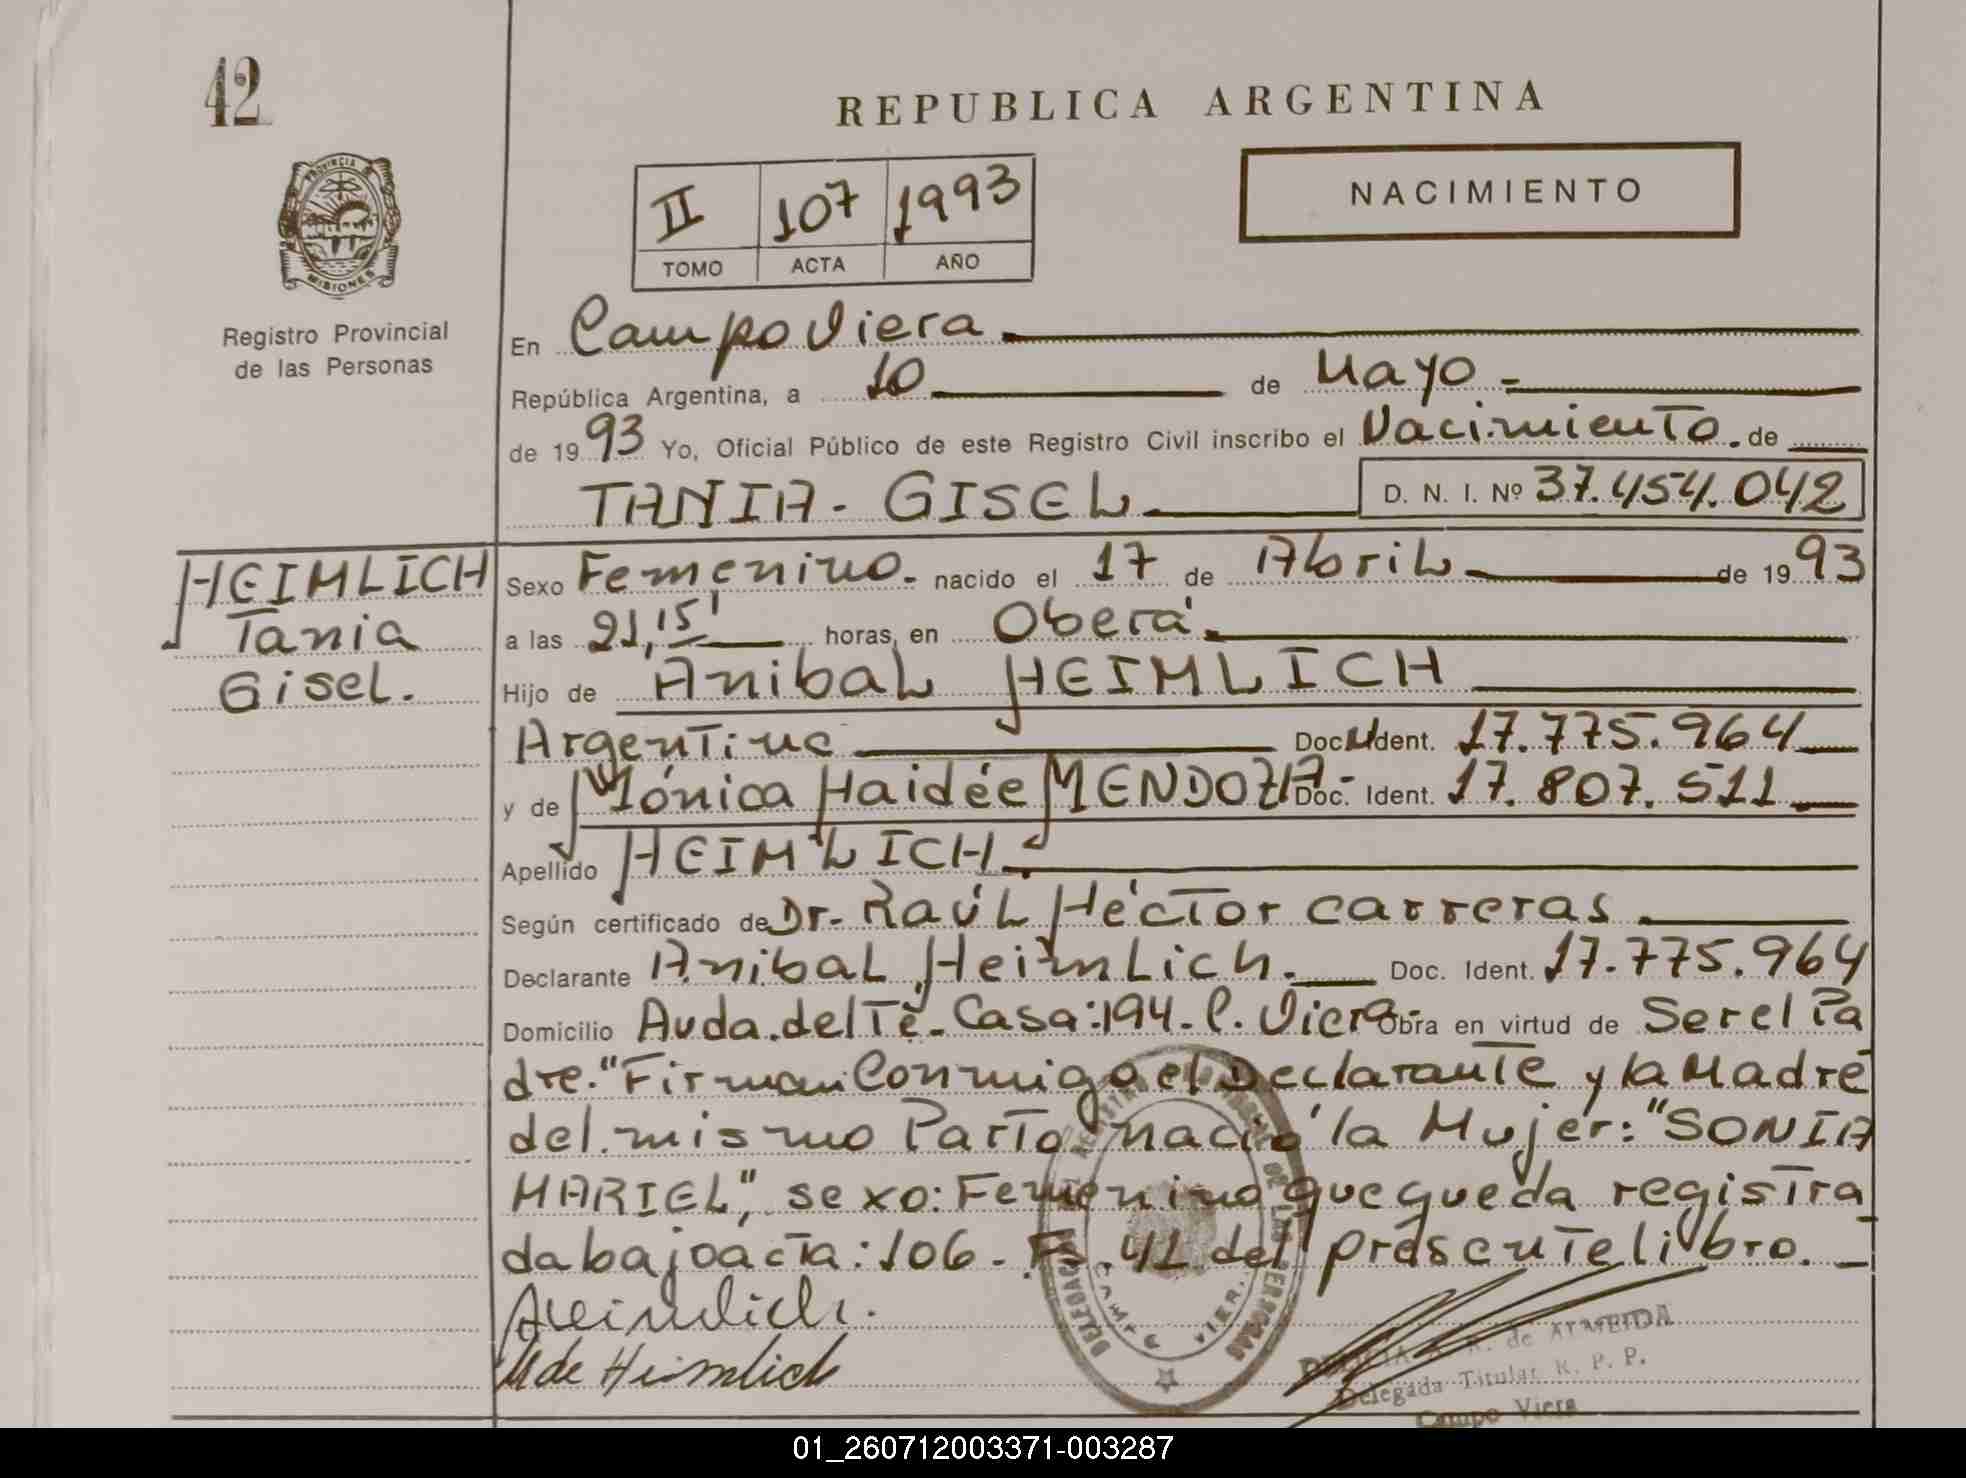 42
REPUBLICA ARGENTINA
PROVINCIA DE MISIONES
NACIMIENTO
II 107 1993
TOMO ACTA AÑO
Registro Provincial
de las Personas
En Campo Viera
República Argentina, a 10 de Mayo
de 1993 Yo, Oficial Público de este Registro Civil inscribo el Nacimiento. de
TANIA - GISEL D. N. I. Nº 37.454.042
HEIMLICH
Tania
Gisel.
Sexo Femenino. nacido el 17 de Abril de 1993
a las 21,15' horas, en Oberá.
Hijo de Anibal HEIMLICH
Argentino Doc. Ident. 17.775.964
y de Mónica Haidée MENDOZA- Doc. Ident. 17.807.511
Apellido HEIMLICH.
Según certificado de Dr. Raúl Héctor Carreras
Declarante Anibal Heimlich. Doc. Ident. 17.775.964
Domicilio Avda. del Té - Casa: 194 - C. Viera - Obra en virtud de Ser el Pa
dre." Firman Conmigo el Declarante y la Madre
del mismo Parto nació la Mujer: "SONIA
MARIEL", sexo: Femenino que queda registra
da bajo acta: 106 - Fº 41 del presente libro.
AHeimlich.
M de Heimlich
R. de ALMEIDA
Delegada Titular R. P. P.
Campo Viera
01_260712003371-003287